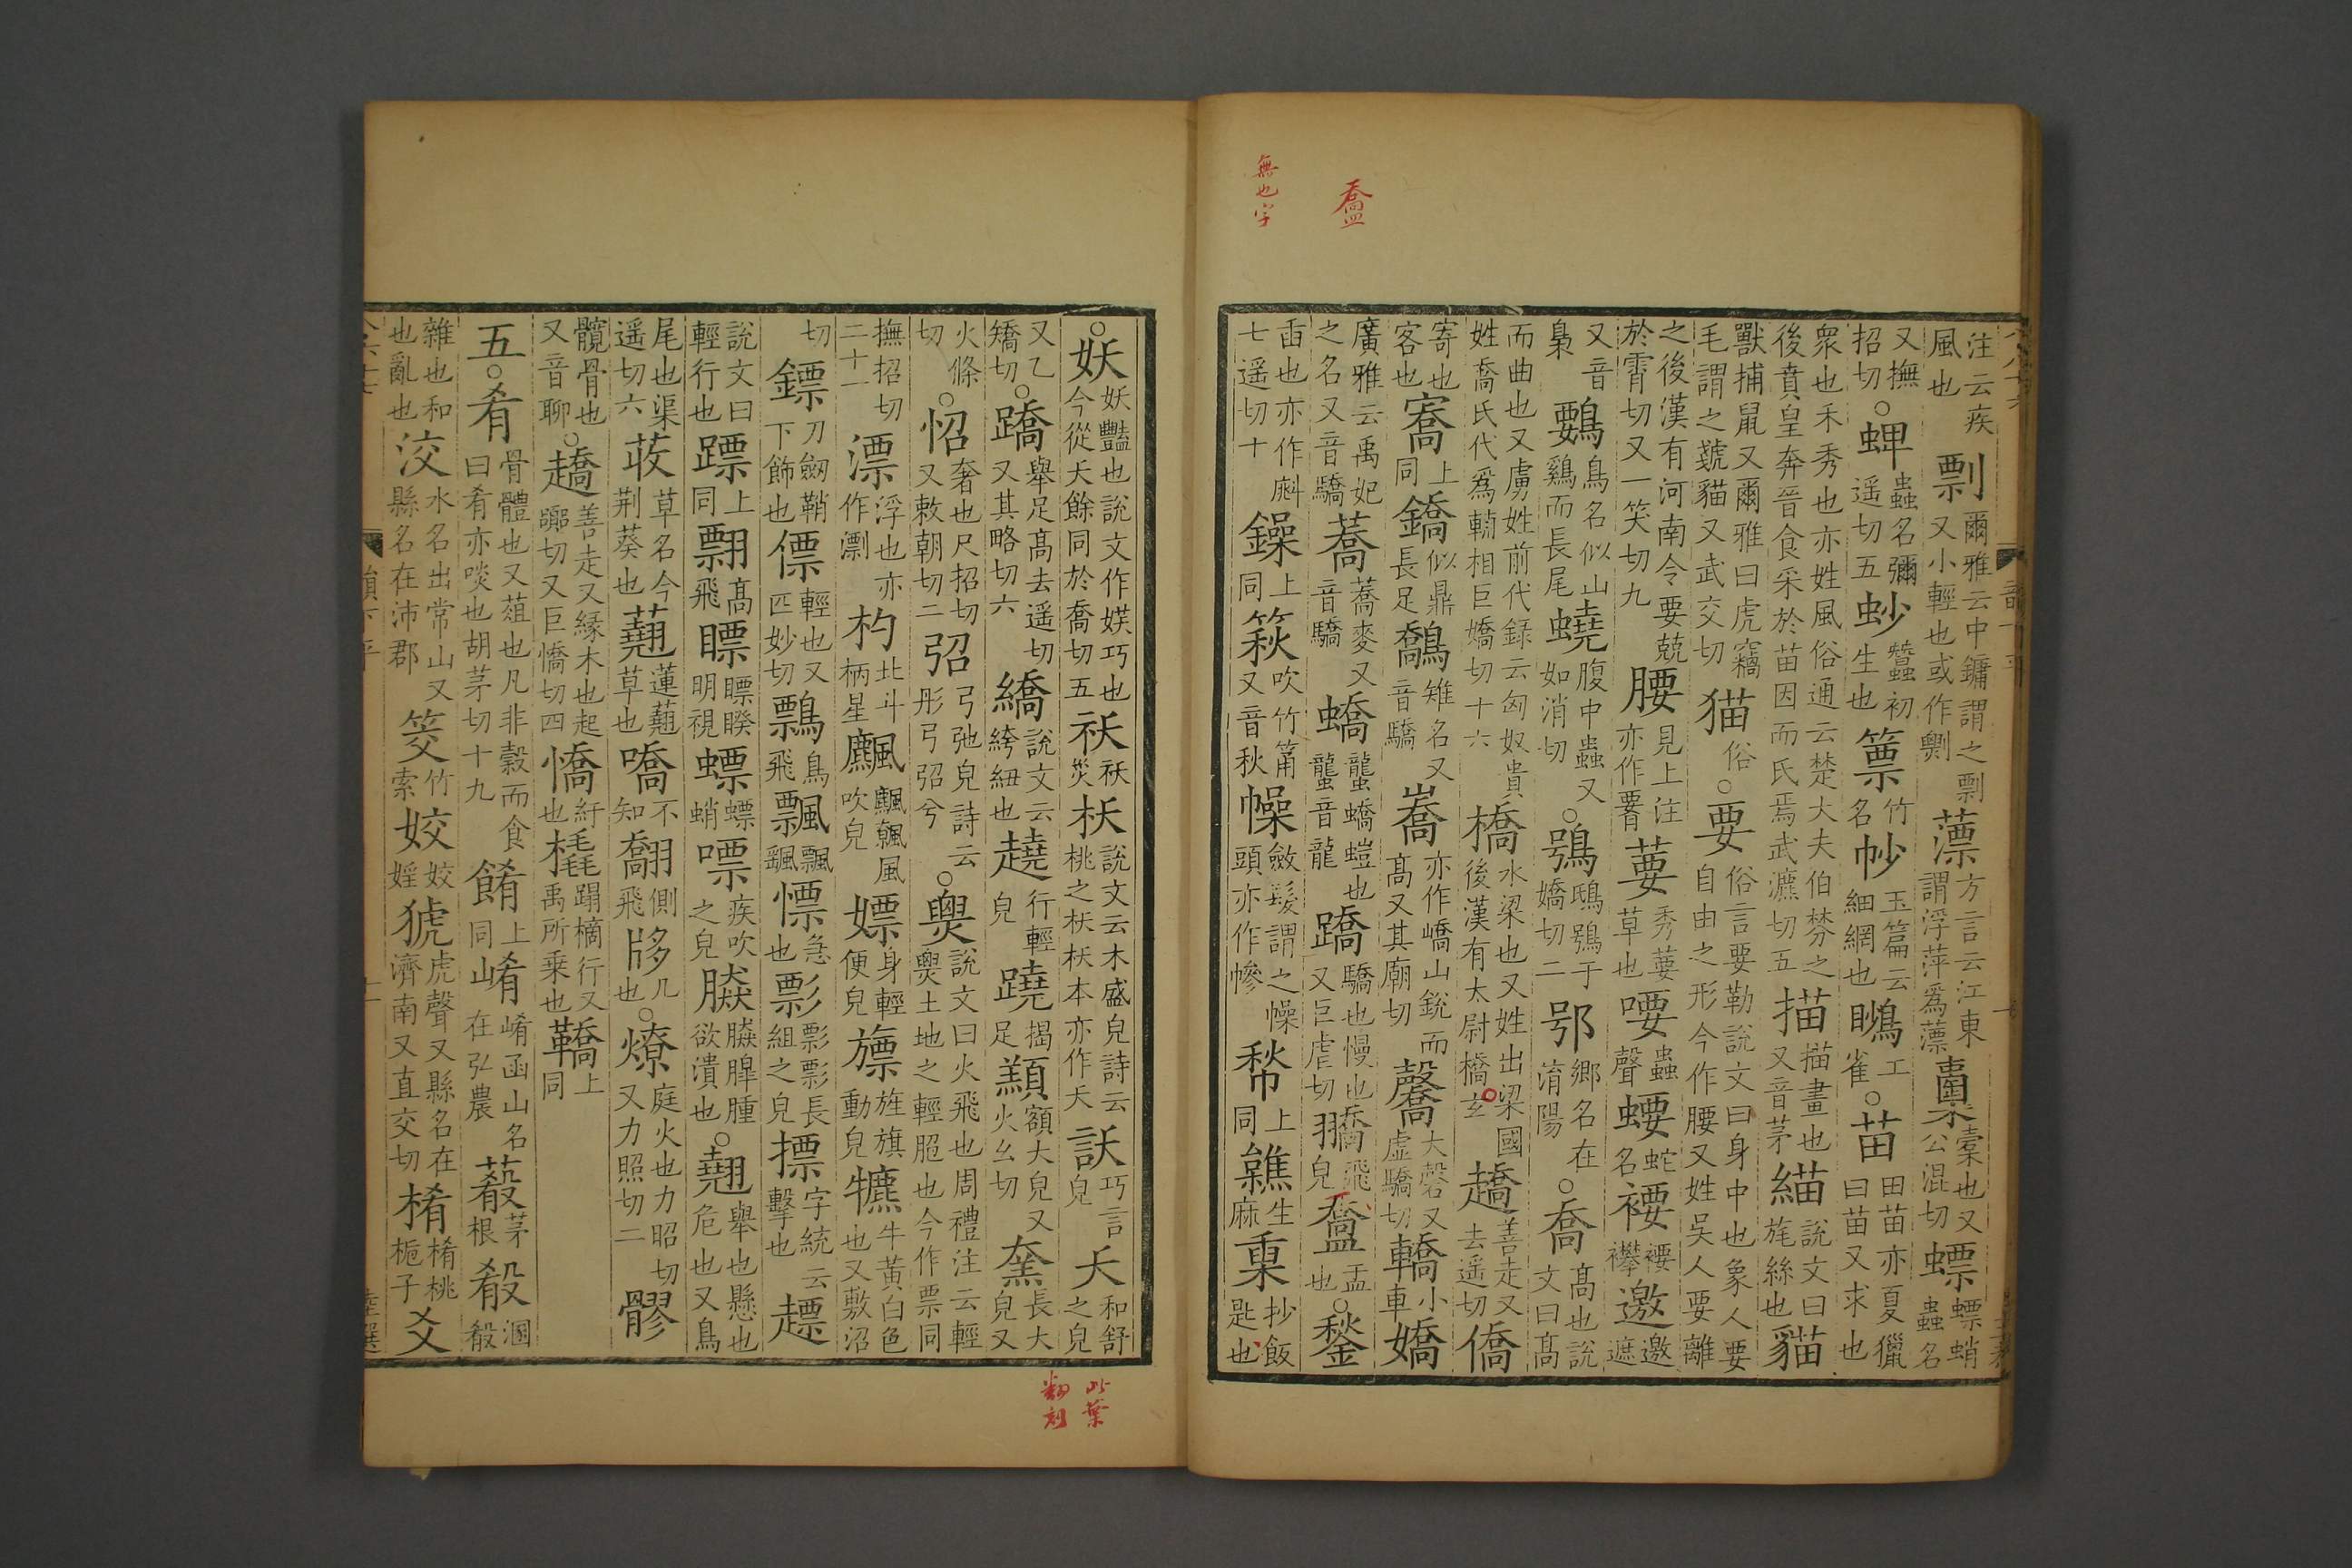 無也字
注云疾風也剽爾雅云中鏞謂之剽又小輕也或作㔄薸方言云江東謂浮萍爲薸橐橐也又公混切螵螵蛸蟲名
又撫招切○蜱蟲名彌遥切五䖢蠶初生也篻竹名㡋玉篇云細網也鱙工雀○苗田苗亦夏獵曰苗又求也
衆也禾秀也亦姓風俗通云楚大夫伯棼之後賁皇奔晉食采於苗因而氏焉武瀌切五描描畫也又音茅緢說文曰旄絲也貓
獸捕鼠又爾雅曰虎竊毛謂之虦貓又武交切猫俗○要俗言要勒說文曰身中也象人要自由之形今作腰又姓吳人要離
之後漢有河南令要兢於霄切又一笑切九腰見上注亦作𦝫葽秀葽草也喓蟲聲䙅蛇名褸襻邀邀遮
又音梟鷅鳥名似山雞而長尾蟯腹中蟲又如消切○鴞鴟鴞于嬌切二鄂鄉名在淯陽○喬高也說文曰高
而曲也又虜姓前代録云匈奴貴姓喬氏代爲輔相巨嬌切十六橋水梁也又姓出梁國後漢有太尉橋玄趫善走又去遥切僑
寄也客也㝯上同鐈似鼎長足鷮雉名又音驕嶠亦作嶠山銳而高又其廟切䯨大磬又虛驕切轎小車嬌
廣雅云禹妃之名又音驕蕎蕎麥又音驕蟜蠪蟜螘也蠪音龍蹻驕也慢也又巨虐切𦒓飛皃𥂔盂也○鍫
臿也亦作㪻七遥切十鐰上同篍吹竹筩又音秋幧斂髮謂之幧頭亦作幓㡑上同䌭生麻㮗抄飯匙也
○妖妖豔也說文作媄巧也今從夭餘同於喬切五祅祅災枖說文云木盛皃詩云桃之枖枖本亦作夭訞巧言皃夭和舒之皃
又乙矯切○蹻舉足高去遥切又其略切六繑說文云絝紐也趬行輕皃蹺揭足顤額大皃又火幺切䆻長大皃又
火條切○怊奢也尺招切又敕朝切二弨弓弛皃詩云彤弓弨兮○㷼說文曰火飛也周禮注云輕㷼土地之輕脃也今作票同
撫招切二十一漂浮也亦作㵱杓北斗柄星飍飍飍風吹皃嫖身輕便皃旚旌旗動皃犥牛黃白色也又敷沼
切鏢刀劒鞘下飾也僄輕也又匹妙切鷅鳥飛飄飄颻慓急也彯彯彯長組之皃摽字統云擊也趮
說文曰輕行也䠠上同翲高飛瞟瞟睽明視螵螵蛸嘌疾吹之皃膘膘脹腫欲潰也○翹舉也懸也危也又鳥
尾也渠遥切六荍草名今荆葵也藮蓮藮草也嘺不知𦒓側飛䏏几也○燎庭火也力昭切又力照切二髎
髖骨也又音聊○趫善走又緣木也起嚻切又巨憍切四憍紆也橇蹋擿行又禹所乗也鞽上同
五○肴骨體也又葅也凡非穀而食曰肴亦啖也胡茅切十九餚上同崤崤函山名在弘農藃茅根殽溷殽
雜也和也亂也洨水名出常山又縣名在沛郡筊竹索姣姣婬虓虎聲又縣名在濟南又直交切㭴㭴桃梔子爻
此葉翻刻